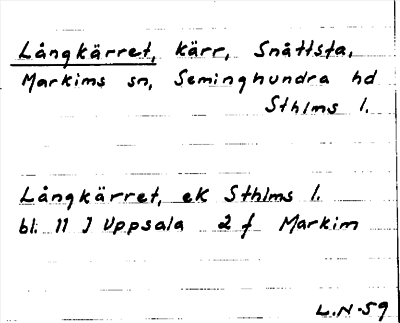 Långkärret, kärr, Snåttsta,
Markims sn, Seminghundra hd
Sthlms l.
Långkärret, ek Sthlms l.
bl. 11 J Uppsala 2 f Markim
L.N-59